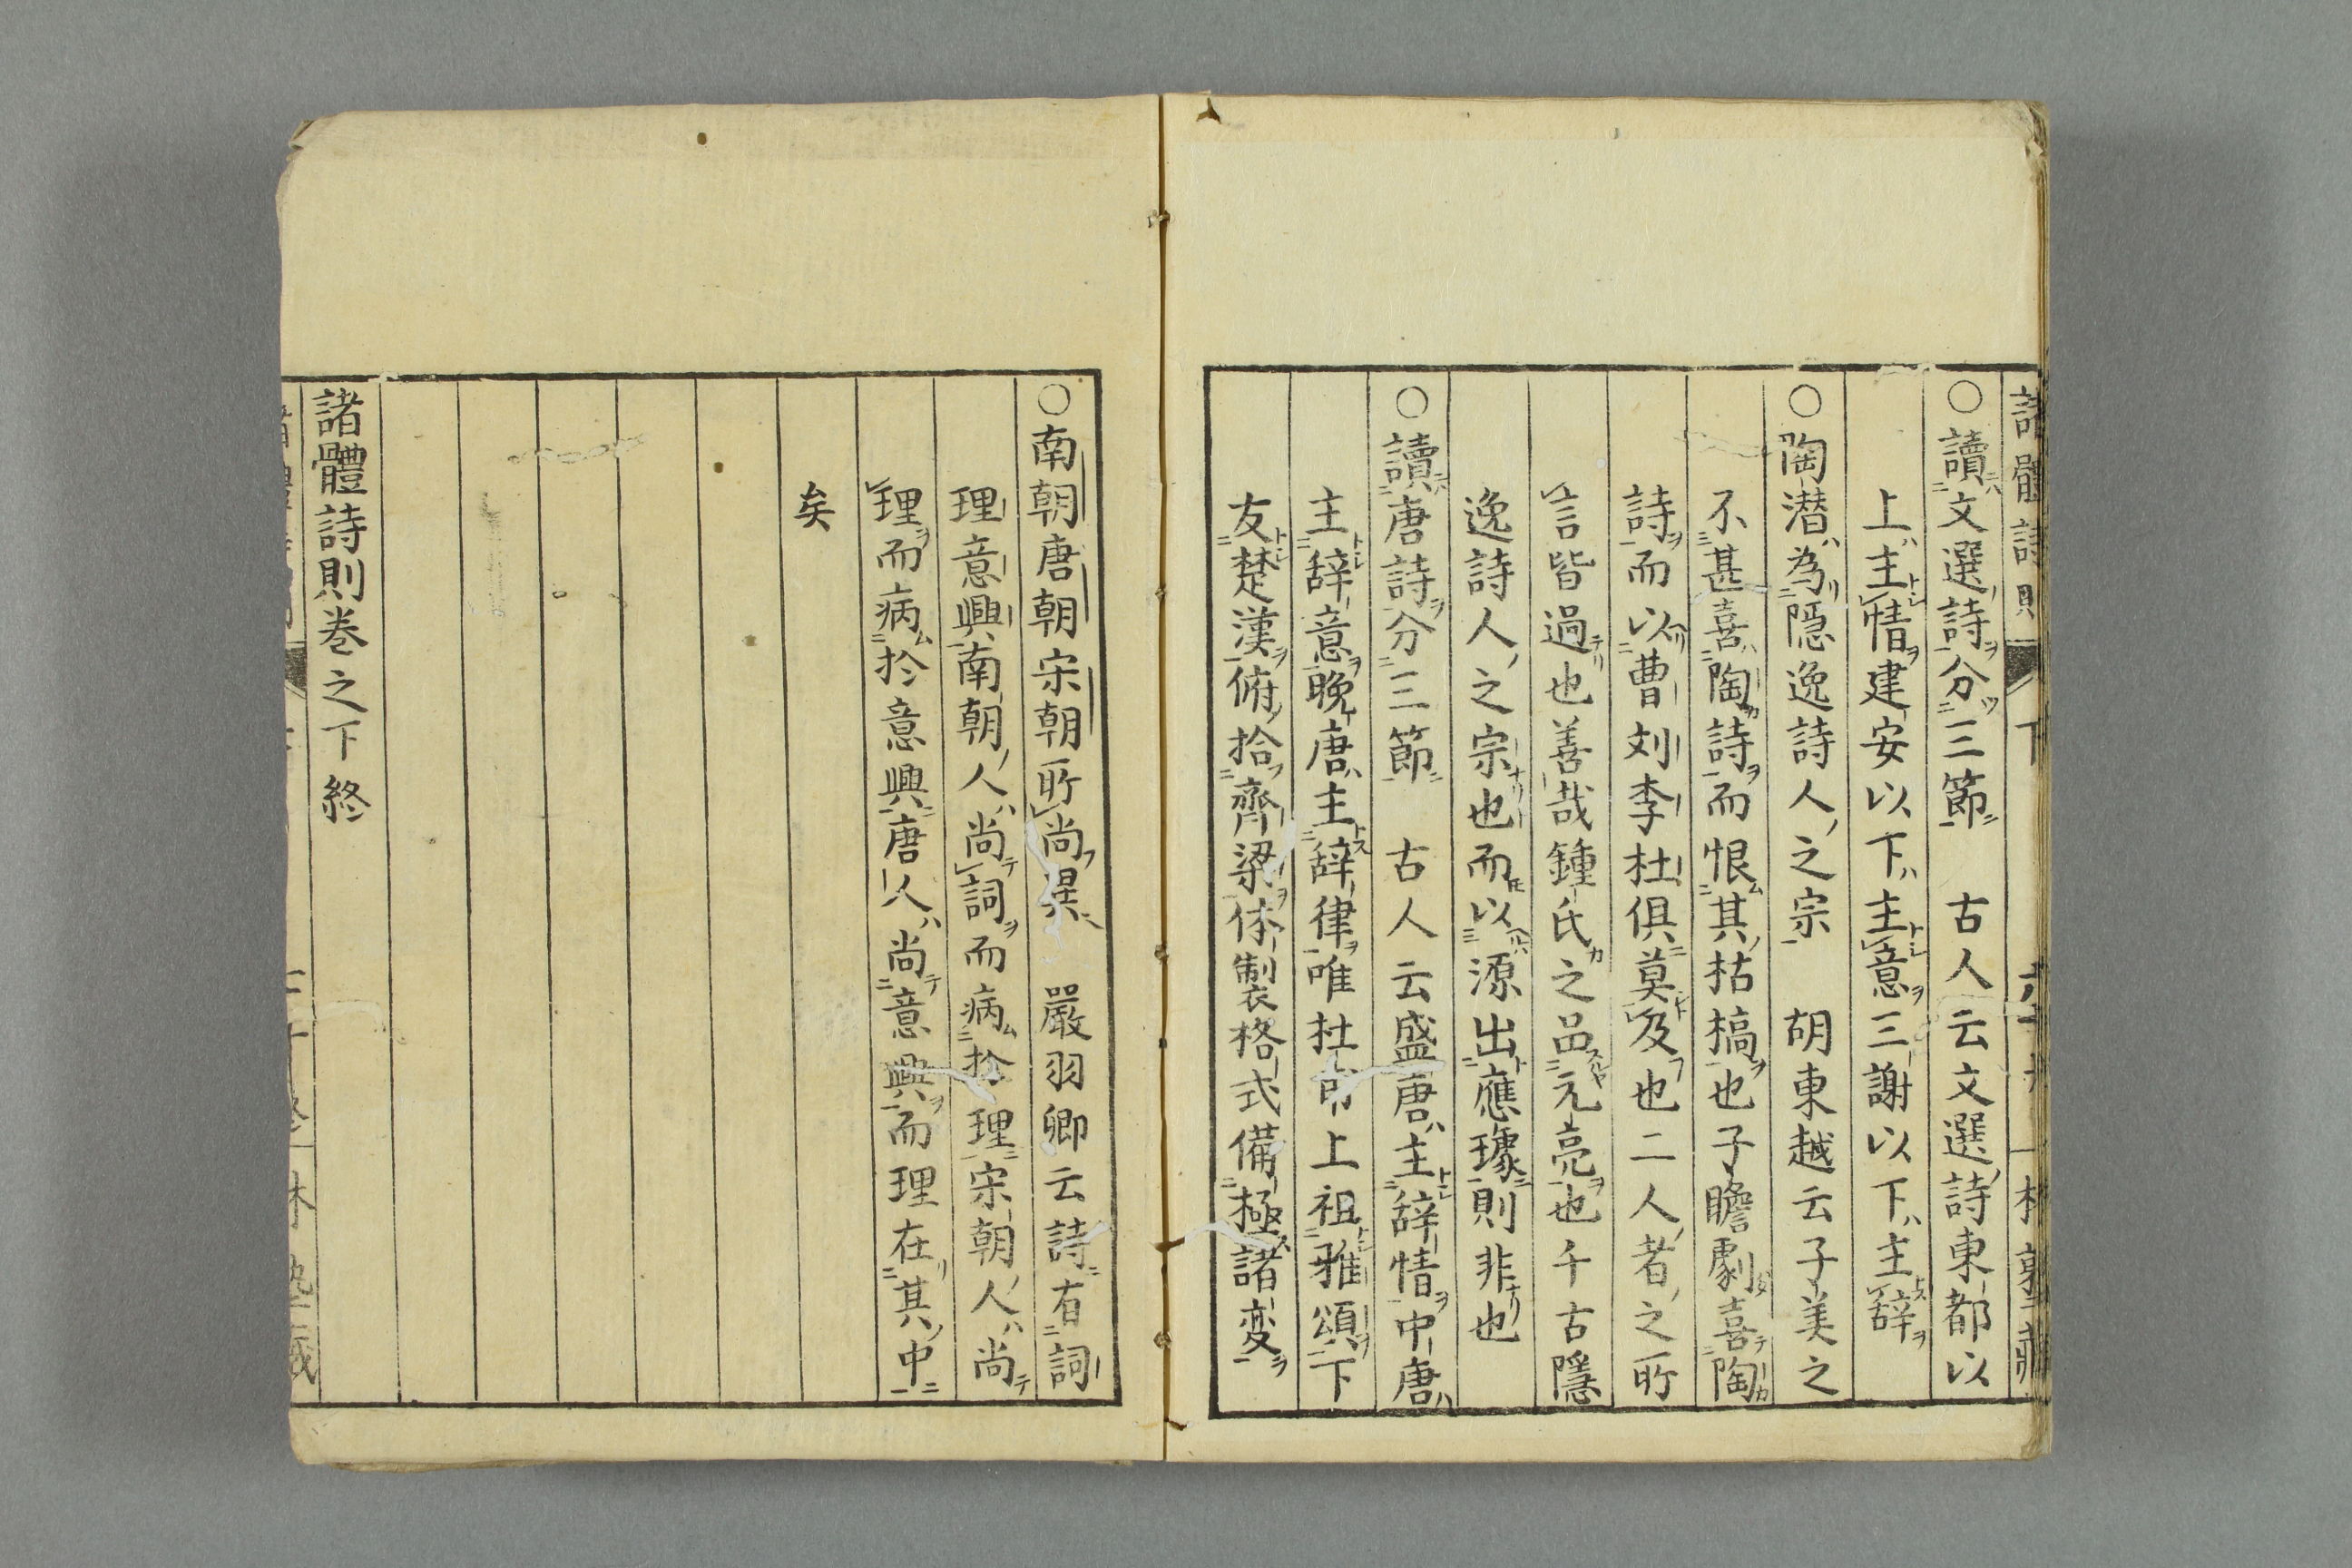 諸體詩則 下
○讀文選詩分三節 古人云文選詩東都以
上主情建安以下主意三謝以下主辞
○陶潜為隱逸詩人之宗 胡東越云子美之
不甚喜陶詩而恨其枯槁也子瞻劇喜陶
詩而以曹刘李杜俱莫及也二人者之所
言皆過也善哉鍾氏之品元亮也千古隱
逸詩人之宗也而以源出應璩則非也
○讀唐詩分三節 古人云盛唐主辞情中唐
主辞意晚唐主辞律唯杜甫上祖雅頌下
友楚漢俯拾齊梁体製格式備極諸変
○南朝唐朝宋朝所尚異 嚴羽卿云詩有詞
理意興南朝人尚詞而病扵理宋朝人尚
理而病扵意興唐人尚意興而理在其中
矣
諸體詩則巻之下終